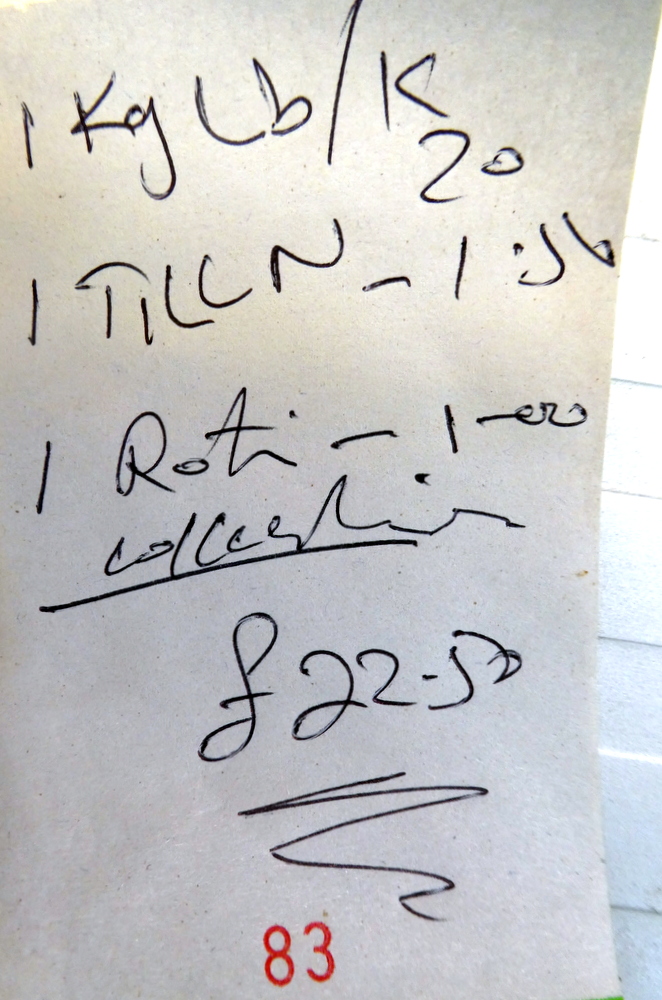 1 Kg Lb/K
20
1 TILLN - 1.50
1 Roti - 1-00
collection
£22.50
83